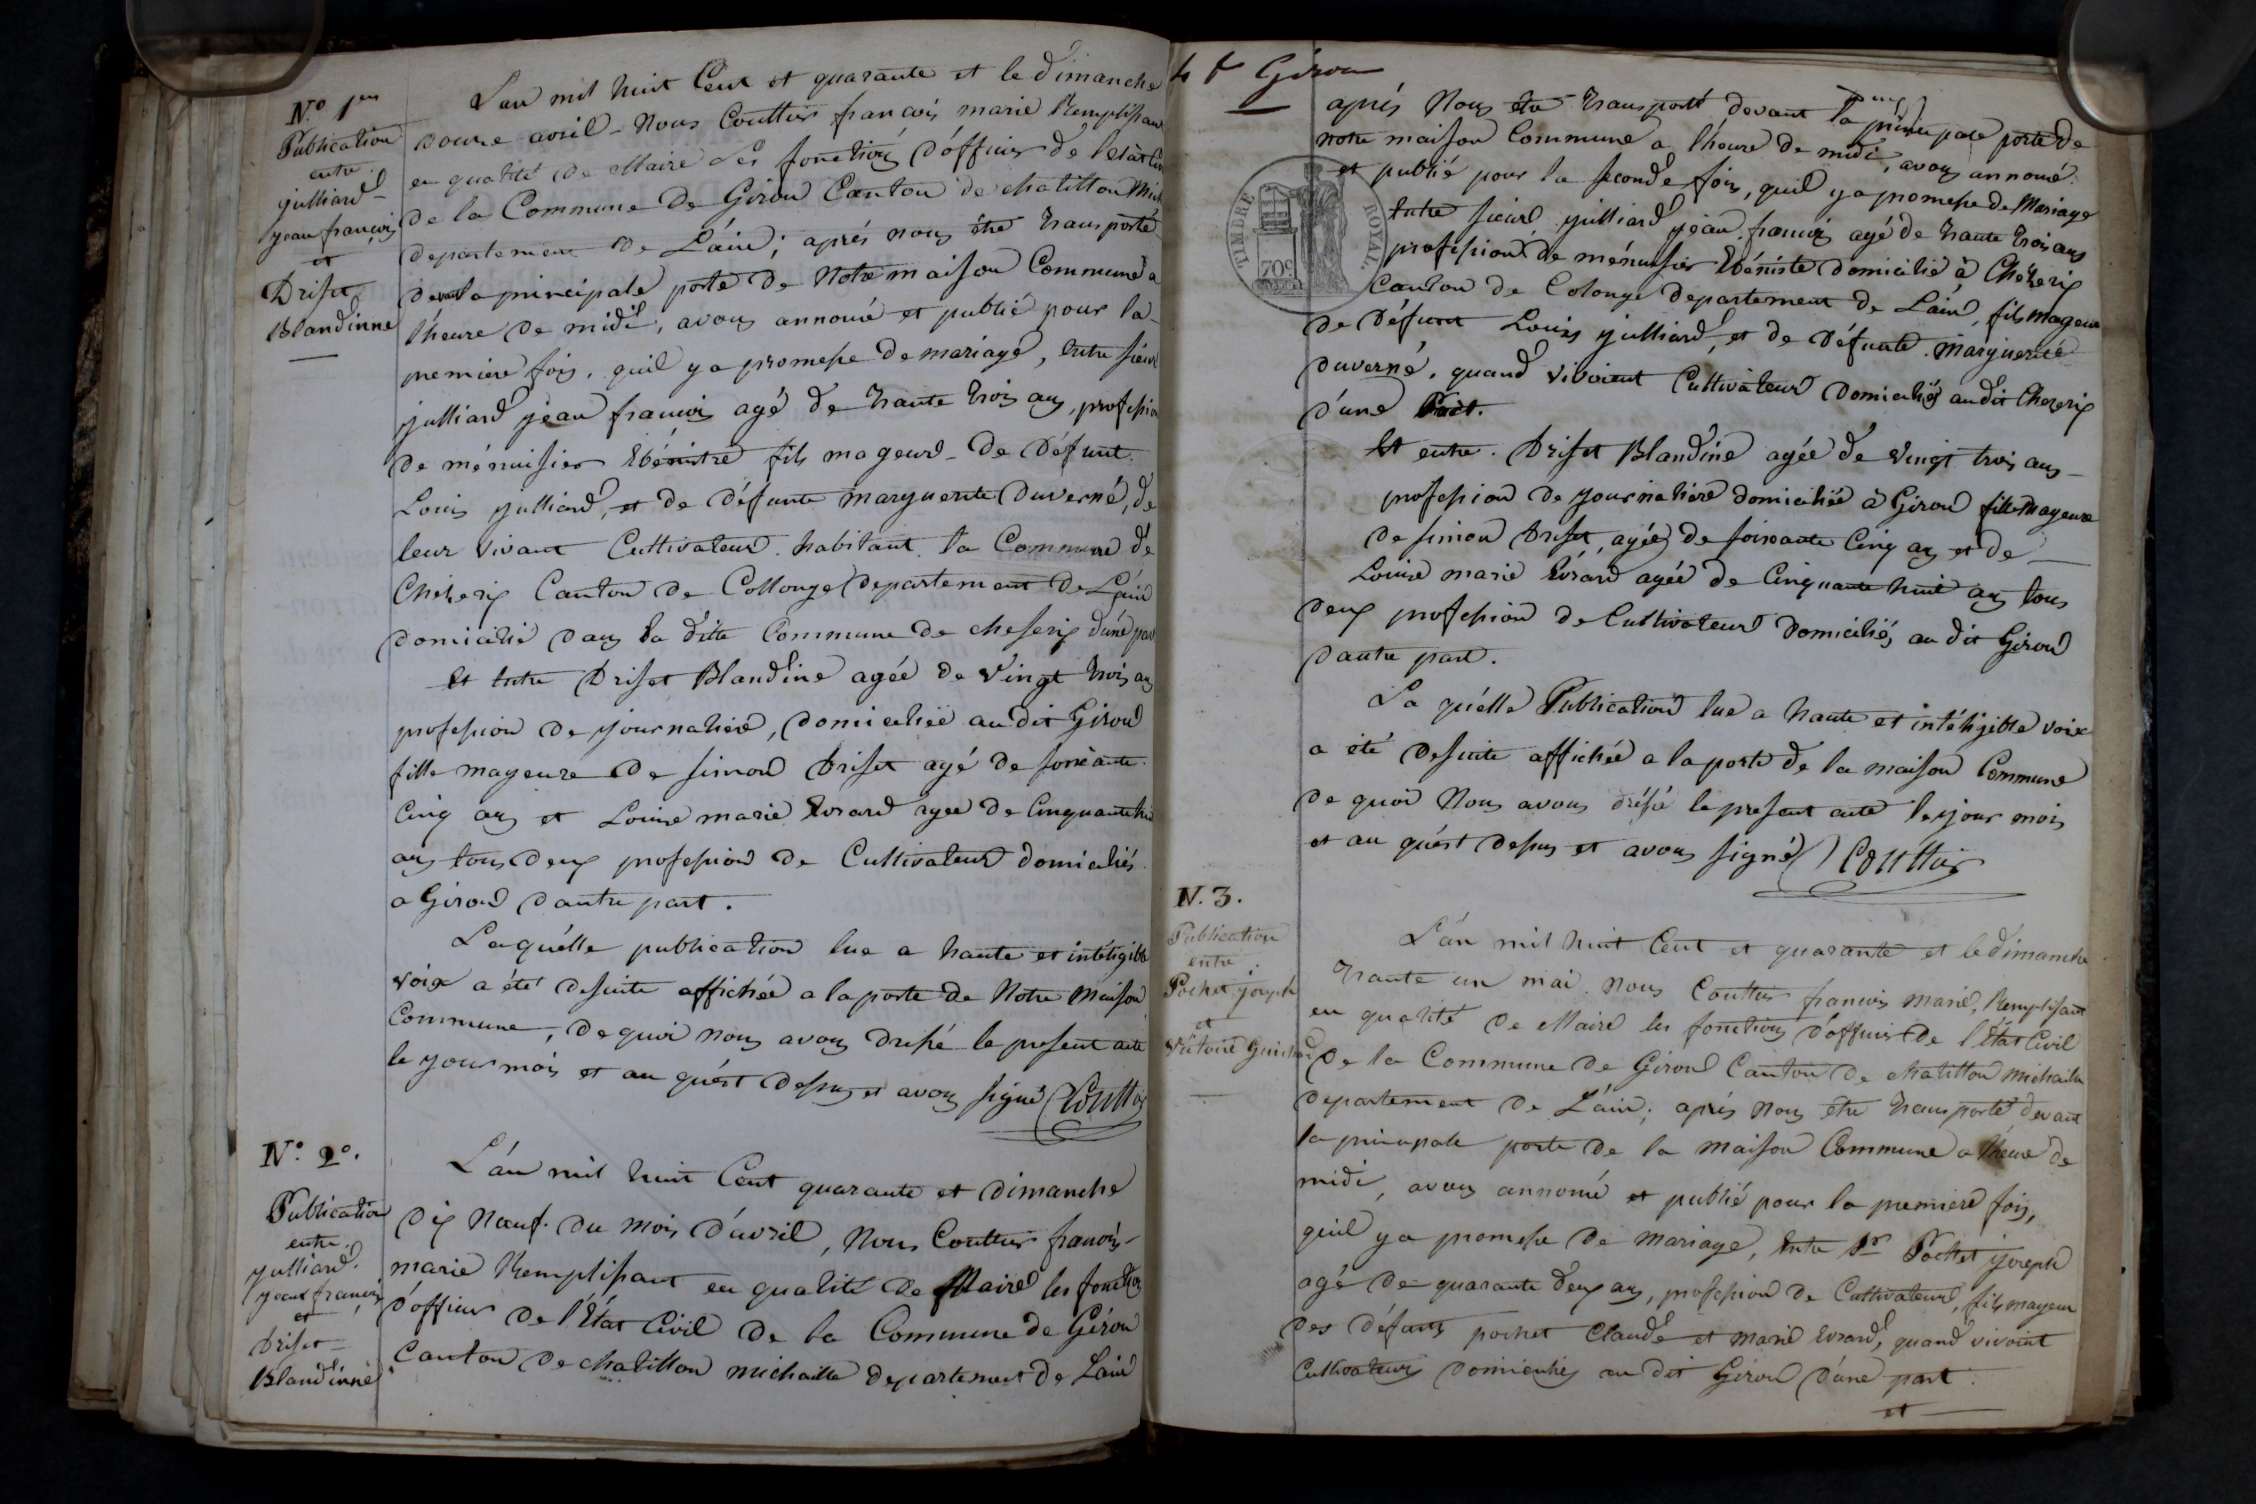 N.° 1er
Publication
entre
julliard
jean françois
et
Driset
Blandinne
L'an mil huit Cent et quarante et le dimanche
douze avril - Nous Couttier françois marie Remplissant
en qualité de Maire les fonctions d'officier de l'etat Civ
de la Commune de Giron Canton de chatillon Mich
departement de L'ain; aprés nous être transporté
devant la principale porte de Notre maison Commune a
l'heure de midi, avons annoncé et publié pour la
premiere fois, quil y a promesse de mariage, Entre sieur
julliard jean françois agé de trante trois ans, profession
de ménuisier Ebénistre fils mageur de Défunt
Louis julliard, et de défunte marguerite Duverné, de
leur vivant Cultivateur habitant la Commune de
Chézerix Canton de Collonge departement de L'ain
domicilié dans la dite Commune de cheserix d'une part
Et Entre Driset Blandine agée de Vingt trois ans
profession de journaliere, domiciliée au dit Giron
fille mageure de simon Driset agé de soixante
Cinq ans et Louise marie Evrard agée de Cinquante hui
ans tous deux profession de Cultivateur domiciliés
a Giron d'autre part.
La quélle publication lue a haute et intéligible
voix a été desuite affichée a la porte de Notre Maison
Commune, de quoi nous avons dressé le present acte
le jour mois et an qu'ést dessus et avons signé Couttier
N.° 2°.
Publication
entre
julliard
jean françois
et
Driset
Blandinne
L'an mil huit Cent quarante et dimanche
dix Neuf du mois d'avril, Nous Couttier françois
marie Remplissant en qualité de Maire les fonctions
d'officier de l'État Civil de la Commune de Giron
Canton de chatillon michaille departement de L'ain
4 f Giron
aprés Nous être transporté devant la principale porte de
notre maison Commune a l'heure de midi, avons annoncé
et publié pour la seconde fois, quil y a promesse de Mariage
Entre sieur julliard jean françois agé de trante trois ans
profession de ménuisier Ebéniste domicilié à Chézerix
Canton de Colonge departement de L'ain, fils mageur
de Défunt Louis julliard, et de Défunte Marguerite
duverné, quand vivoient Cultivateur Domiciliés au dit Chezerix
d'une Part.
Et entre Driset Blandine agée de vingt trois ans
profession de journaliere domiciliée à Giron fille Mageure
de simon Driset, agée de soixante Cinq ans et de
Louise marie Evrard agée de Cinquante huit ans tous
deux profession de Cultivateur Domiciliés au dit Giron
d'autre part.
La quélle Publication lue a haute et intéligible voix
a été desuite affichée a la porte de la maison Commune
de quoi Nous avons dréssé le present acte le jour mois
et an qu'ést dessus et avons signé Couttier
TIMBRE ROYAL
70 c
N. 3.
Publication
entre
Pochet joseph
et
Victoire Guichard
L'an mil huit Cent et quarante et le dimanche
trante un mai. Nous Couttier françois marie, Remplissant
en qualité de Maire les fonctions d'officier de l'État Civil
de la Commune de Giron Canton de chatillon michaille
departement de L'ain; aprés Nous être transporté devant
la principale porte de la maison Commune a l'heure de
midi, avons annoncé et publié pour la premiere fois,
quil y a promesse de Mariage, Entre Sr Pochet joseph
agé de quarante deux ans, profession de Cultivateur, fils mageur
des défunts pochet Claude et marie Evrard, quand vivoint
Cultivateurs Domiciliés au dit Giron d'une part.
et